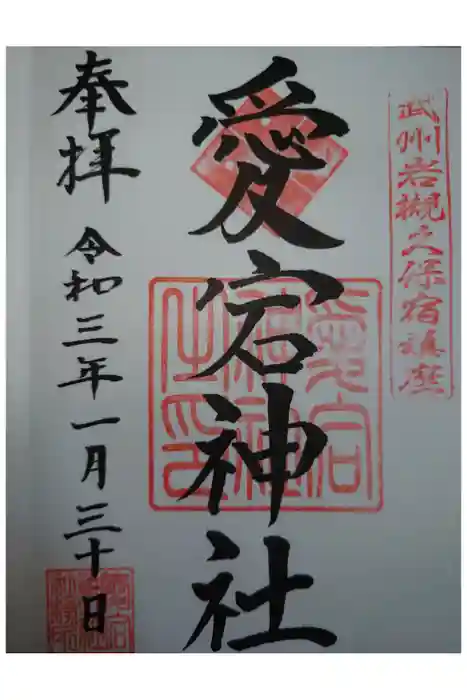 武州岩槻之保宿鎮座
愛宕神社
奉拝
令和三年一月三十日